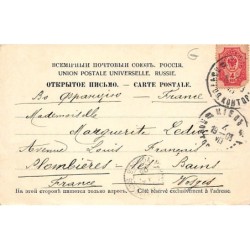 ВСЕМІРНЫЙ ПОЧТОВЫЙ СОЮЗЪ. РОССІЯ.
UNION POSTALE UNIVERSELLE. RUSSIE.
ОТКРЫТОЕ ПИСЬМО. — CARTE POSTALE.
Во Францію — France
Mademoiselle
Marguerite
Avenue Louis Français
Plombières-les-Bains
France Vosges
На этой сторонѣ пишется только адресъ. — Côté réservé exclusivement à l'adresse.